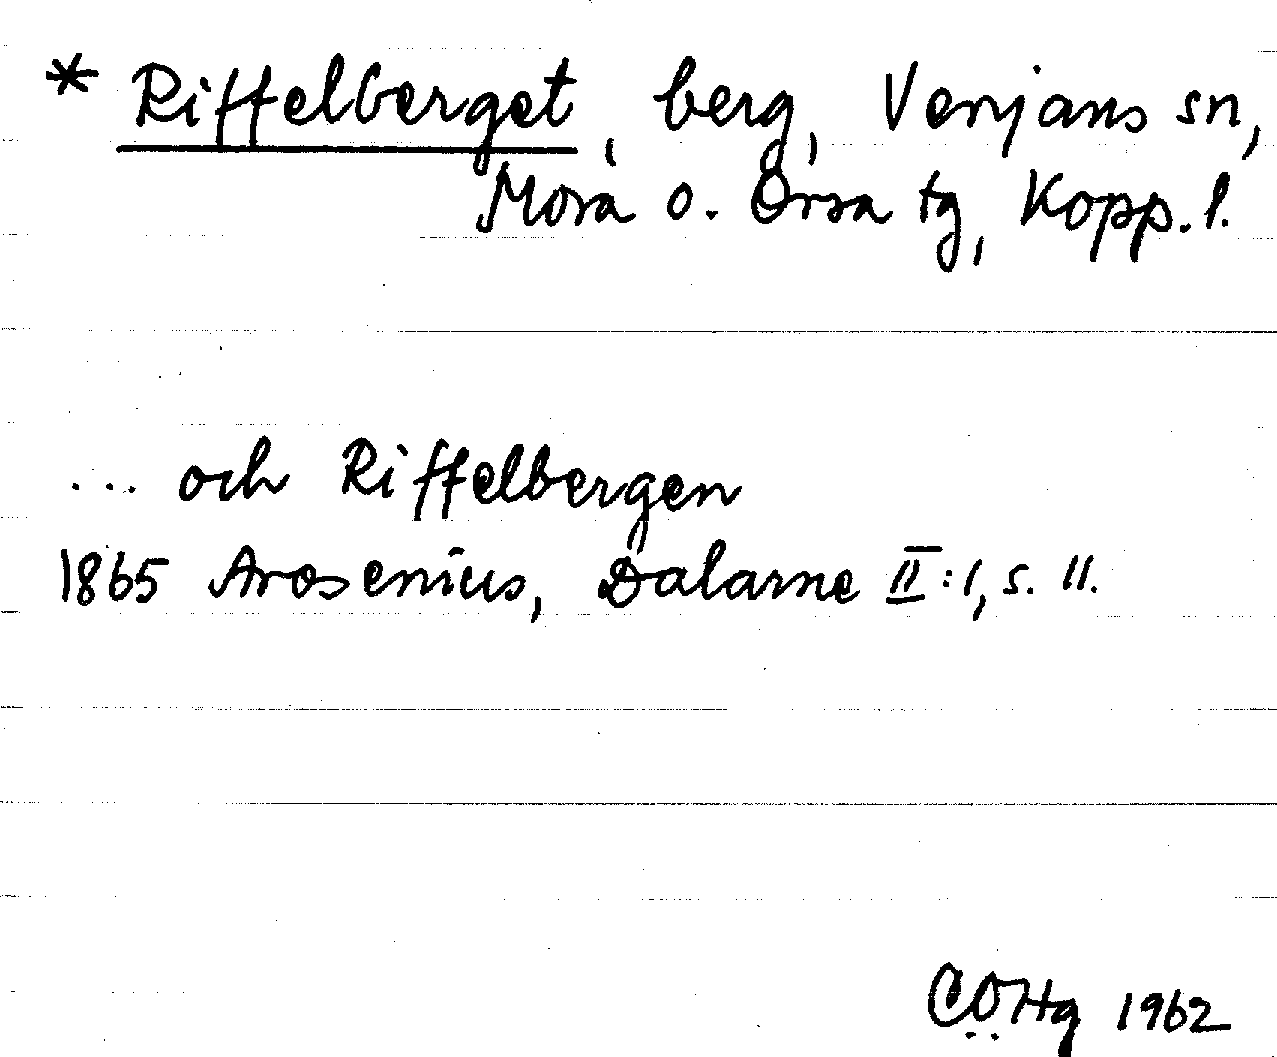 * Riffelberget, berg, Venjans sn,
Mora o. Orsa tg, Kopp. l.
... och Riffelbergen
1865 Arosenius, Dalarne II:1, s. 11.
COHg 1962